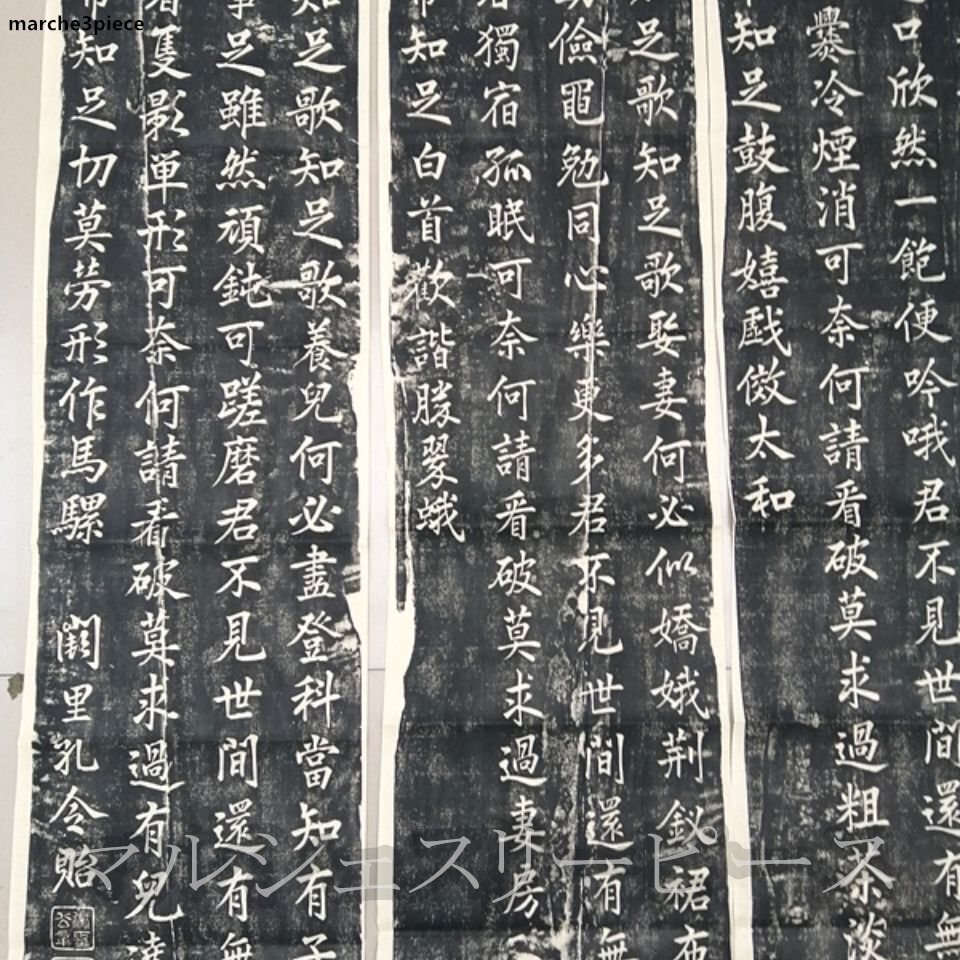 marche3piece
口欣然一飽便吟哦君不見世間還有無
爨冷煙消可奈何請看破莫求過粗茶淡
知足鼓腹嬉戲傚太和
足歌知足歌娶妻何必似嬌娥荊釵裙布
儉黽勉同心樂更多君不見世間還有無
獨宿孤眠可奈何請看破莫求過妻房
知足白首歡諧勝翠蛾
知足歌知足歌養兒何必盡登科當知有子
足雖然頑鈍可蹉磨君不見世間還有無
隻影单形可奈何請看破莫求過有兒
知足切莫劳形作馬騾 闕里孔令貽
マルシェスリーピース